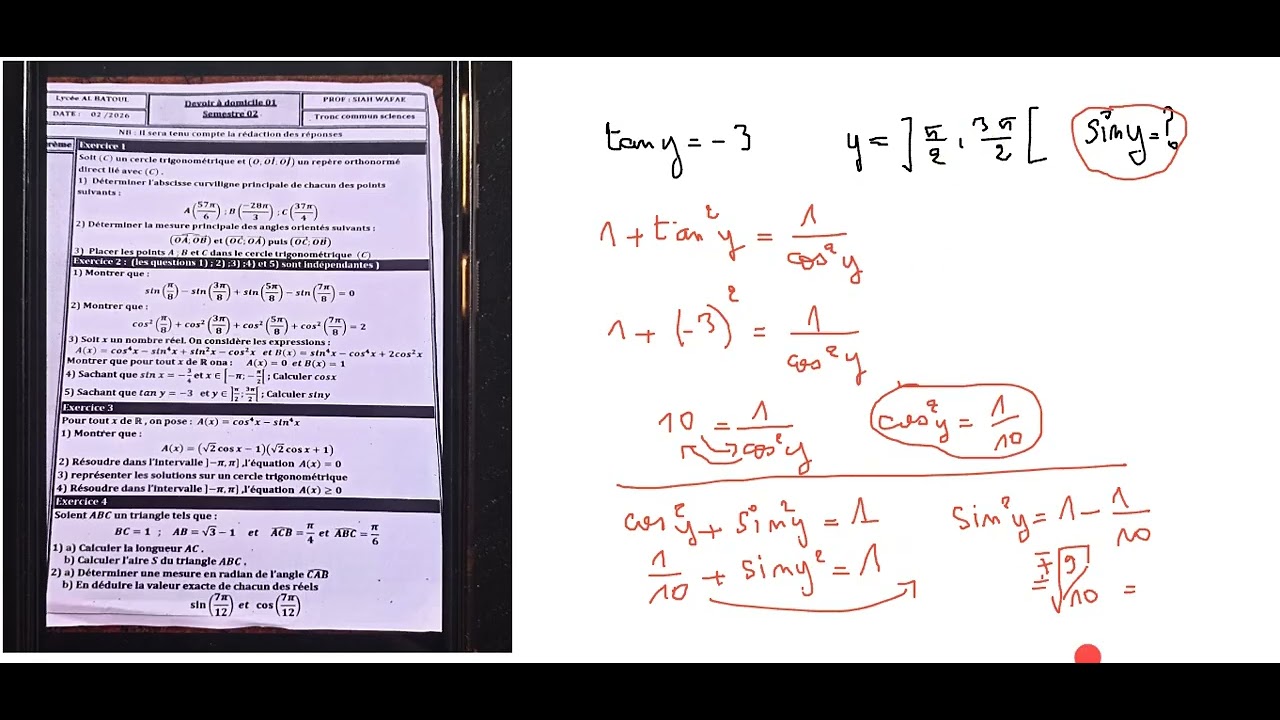 Lycée AL BATOUL
Devoir à domicile 01
PROF : SIAH WAFAE
DATE : 02 /2026
Semestre 02
Tronc commun sciences
NB : Il sera tenu compte la rédaction des réponses
Exercice 1
Soit (C) un cercle trigonométrique et (O, OI, OJ) un repère orthonormé
direct lié avec (C) .
1) Déterminer l'abscisse curviligne principale de chacun des points
suivants :
A(57π/6) ; B(−28π/3) ; C(37π/4)
2) Déterminer la mesure principale des angles orientés suivants :
(OA; OB) et (OC; OA) puis (OC; OB)
3) Placer les points A ; B et C dans le cercle trigonométrique (C)
Exercice 2 : (les questions 1) ; 2) ;3) ;4) et 5) sont indépendantes )
1) Montrer que :
sin(π/8) − sin(3π/8) + sin(5π/8) − sin(7π/8) = 0
2) Montrer que :
cos²(π/8) + cos²(3π/8) + cos²(5π/8) + cos²(7π/8) = 2
3) Soit x un nombre réel. On considère les expressions :
A(x) = cos⁴x − sin⁴x + sin²x − cos²x et B(x) = sin⁴x − cos⁴x + 2cos²x
Montrer que pour tout x de R on a : A(x) = 0 et B(x) = 1
4) Sachant que sin x = −3/4 et x ∈ [−π; −π/2[ ; Calculer cosx
5) Sachant que tan y = −3 et y ∈ ]π/2; 3π/2[ ; Calculer siny
Exercice 3
Pour tout x de R , on pose : A(x) = cos⁴x − sin⁴x
1) Montrer que :
A(x) = (√2 cos x − 1)(√2 cos x + 1)
2) Résoudre dans l'intervalle ]−π, π] ,l'équation A(x) = 0
3) représenter les solutions sur un cercle trigonométrique
4) Résoudre dans l'intervalle ]−π, π] ,l'équation A(x) ≥ 0
Exercice 4
Soient ABC un triangle tels que :
BC = 1 ; AB = √3 − 1 et ACB = π/4 et ABC = π/6
1) a) Calculer la longueur AC .
b) Calculer l'aire S du triangle ABC .
2) a) Déterminer une mesure en radian de l'angle CAB
b) En déduire la valeur exacte de chacun des réels
sin(7π/12) et cos(7π/12)
tan y = − 3 y = ]π/2 , 3π/2[ sin y = ?
1 + tan² y = 1/cos² y
1 + (−3)² = 1/cos² y
10 = 1/cos² y cos² y = 1/10
cos² y + sin² y = 1 sin² y = 1 − 1/10
1/10 + sin y² = 1 = ∓√9/10 =